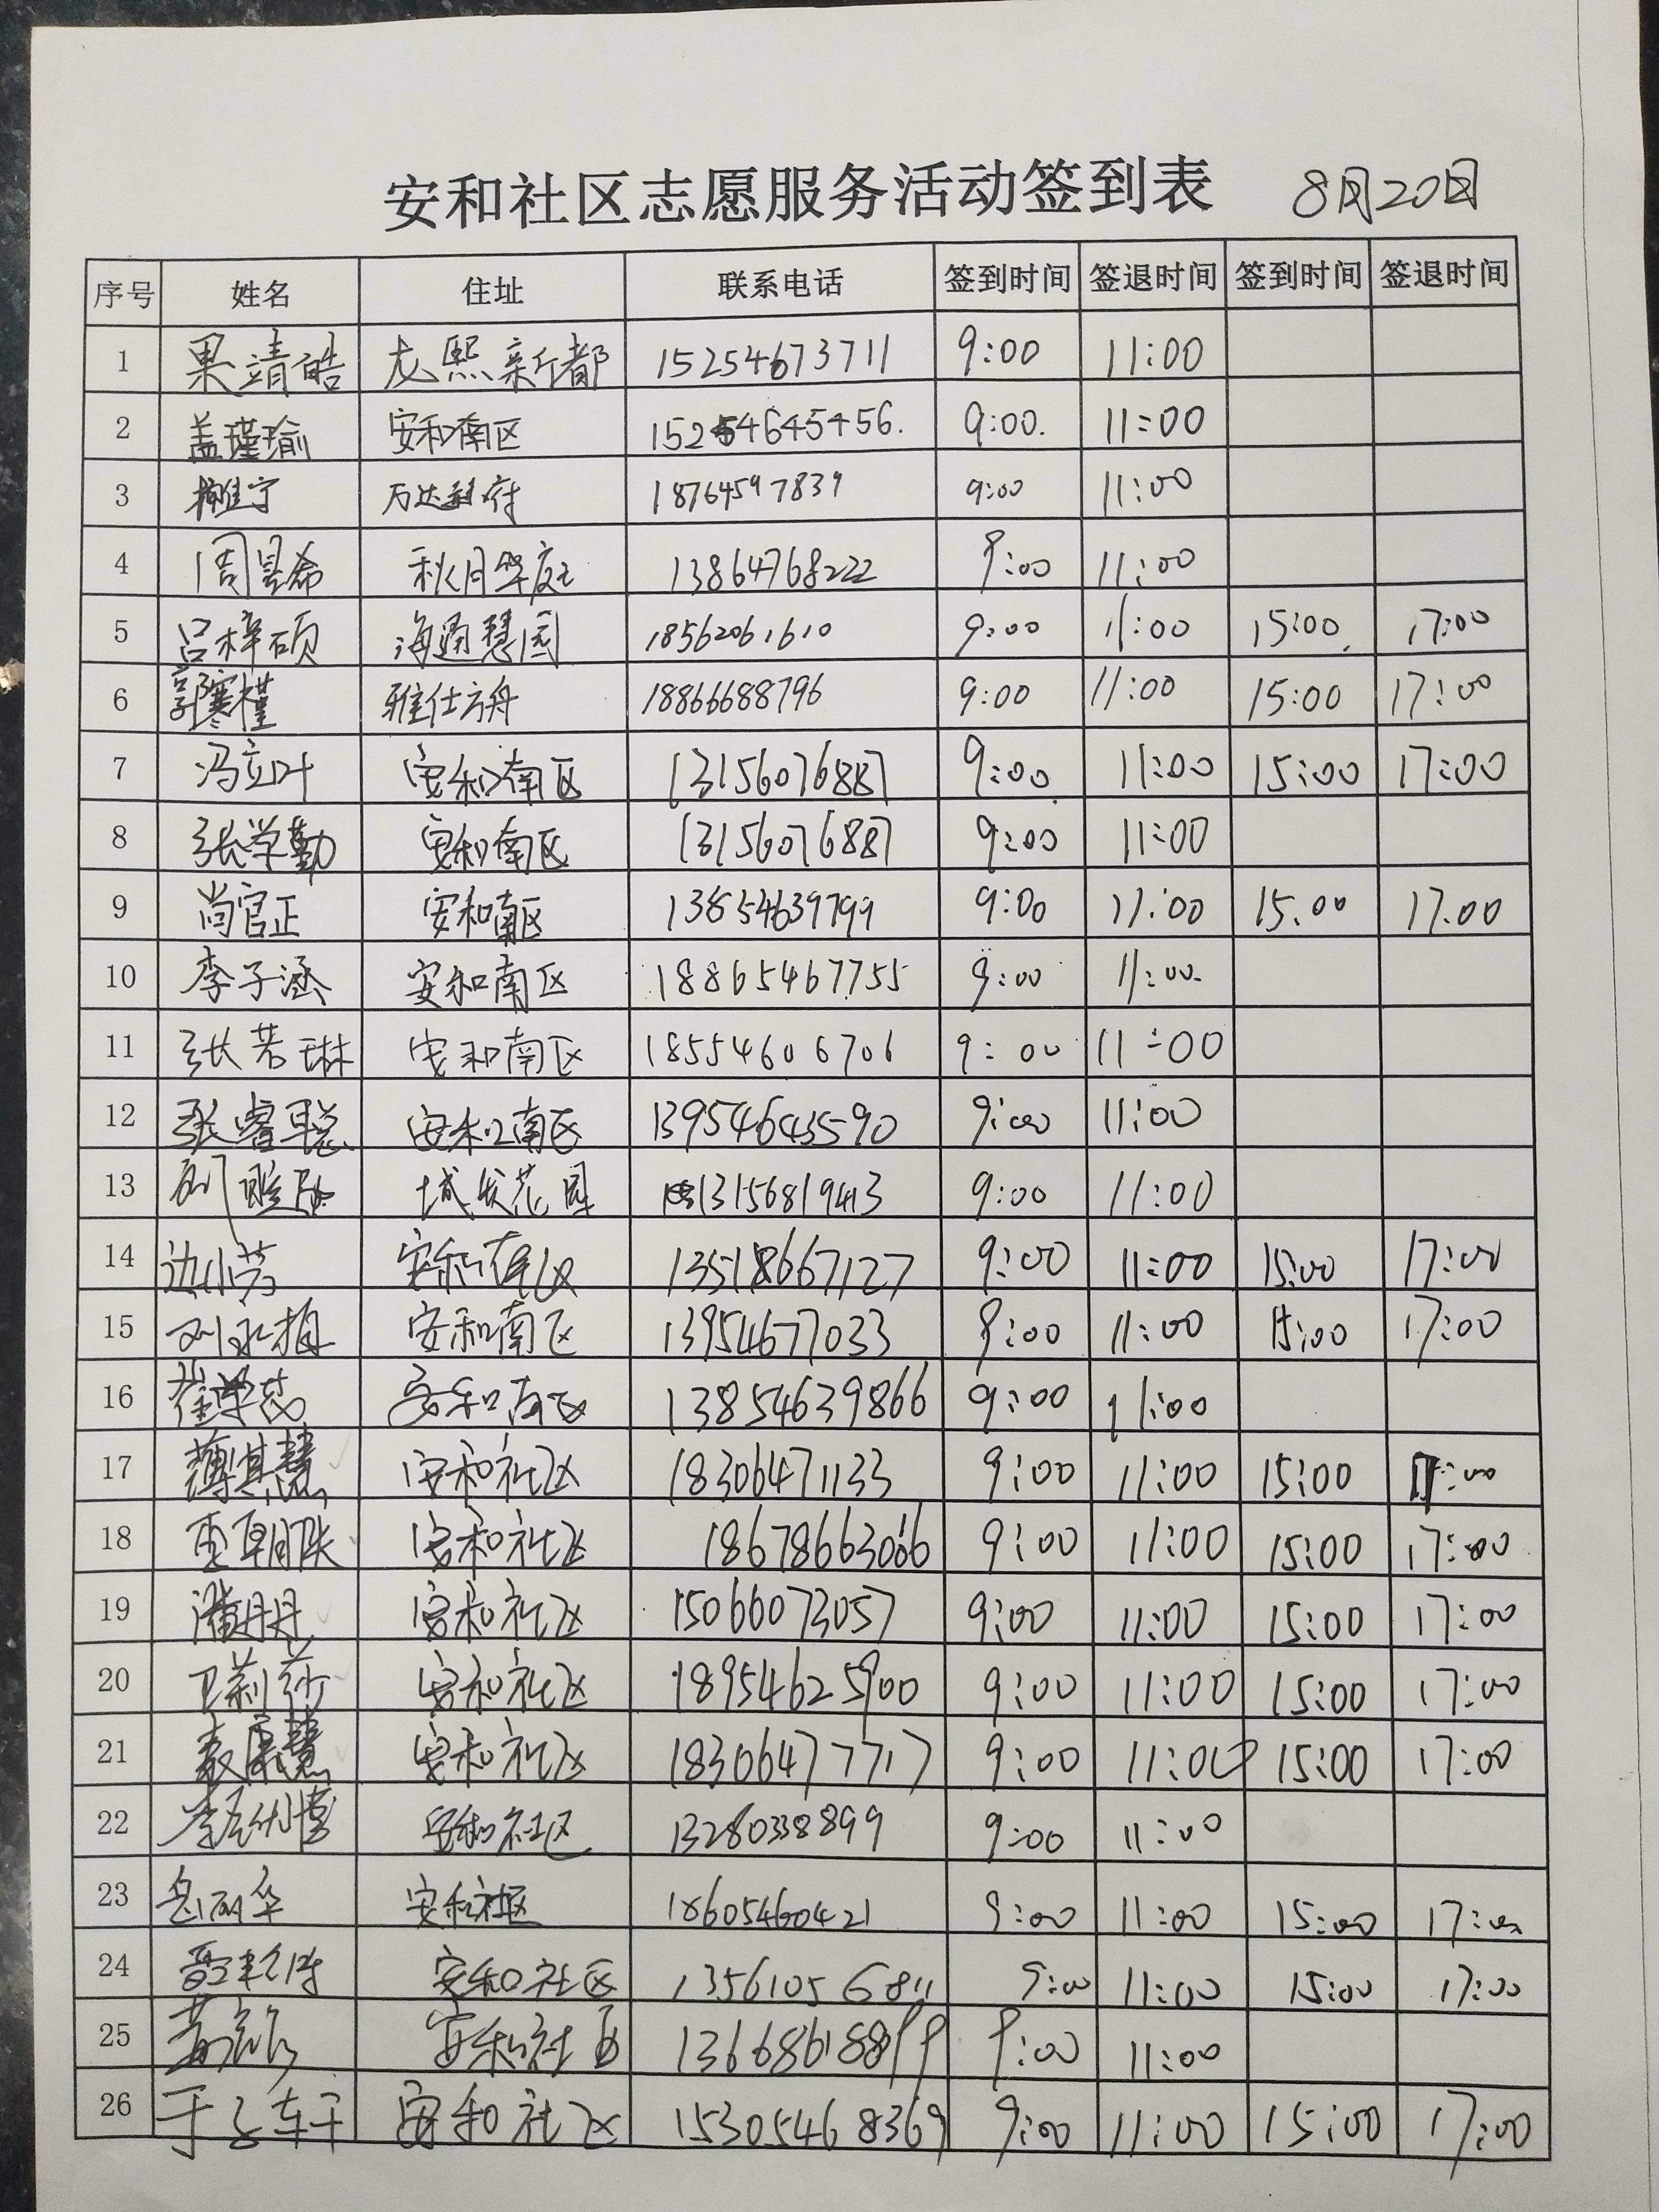 安和社区志愿服务活动签到表 8月20日
序号 姓名 住址 联系电话 签到时间 签退时间 签到时间 签退时间
1 果靖皓 龙熙新都 15254673711 9:00 11:00
2 盖瑾瑜 安和南区 15254645456. 9:00. 11:00
3 万达 18764597839 9:00 11:00
4 周昱希 秋月华庭 13864768222 9:00 11:00
5 吕梓硕 海通慧园 18562061610 9:00 11:00 15:00 17:00
6 郭寒槿 雅仕方舟 18866688796 9:00 11:00 15:00 17:00
7 冯立叶 安和南区 13156076887 9:00 11:00 15:00 17:00
8 张学勤 安和南区 13156076887 9:00 11:00
9 尚官正 安和南区 13854639799 9:00 11:00 15.00 17.00
10 李子涵 安和南区 18865467755 9:00 11:00.
11 张若琳 安和南区 18554606706 9:00 11:00
12 张睿聪 安和南区 13954643590 9:00 11:00
13 城发花园 13156819413 9:00 11:00
14 边小芳 安和南区 13518667127 9:00 11:00 15:00 17:00
15 刘永梅 安和南区 13954677033 9:00 11:00 15:00 17:00
16 崔学茂 安和南区 13854639866 9:00 11:00
17 薄其慧 安和社区 18306471133 9:00 11:00 15:00 17:00
18 安和社区 9:00 11:00 15:00 17:00
19 潘丹丹 安和社区 15066073057 9:00 11:00 15:00 17:00
20 卫莉莎 安和社区 18954625900 9:00 11:00 15:00 17:00
21 袁康慧 安和社区 18306477717 9:00 11:00 15:00 17:00
22 安和社区 13280338899 9:00 11:00
23 岳丽华 安和社区 18605460421 9:00 11:00 15:00 17:00
24 安和社区 13561056811 9:00 11:00 15:00 17:00
25 安和社区 13668618899 9:00 11:00
26 于子轩 安和社区 15305468369 9:00 11:00 15:00 17:00